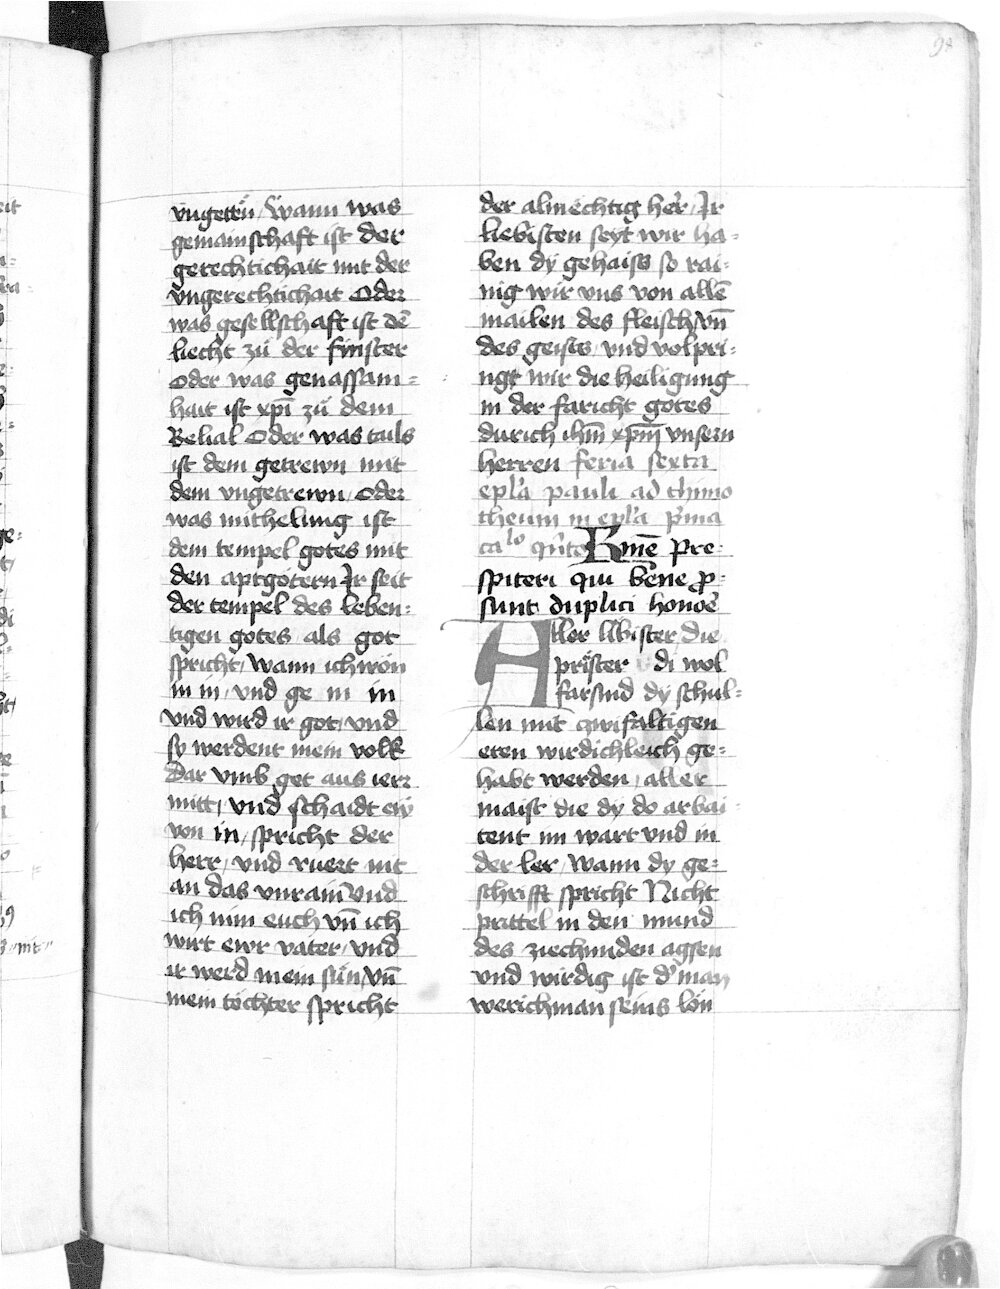 98
vngetrẅ / Wann was
gemainschaft ist der
gerechtichait mit der
vngerechtichait Oder
was gesellschaft ist dē
liecht zu der finster
Oder was genassam=
hait ist xp̄i zu dem
Belial Oder was tails
ist dem getrewn mit
dem vngetrewn / Oder
was mithelung ist
dem tempel gotes mit
den aptgötern Ir seit
der tempel des leben=
tigen gotes als got
spricht / Wann ich won
in in / vnd ge in in
vnd wird ir got / vnd
sy werdent mein volk
Dar vmb get aus ierr
mitt / vnd schaidt ew
von in / spricht der
herr / vnd ruert nit
an das vnrain vnd
ich nim euch vn̄ ich
wirt ewr vater / vnd
ir werd mein sün / vn̄
mein töchter spricht
der almechtig her̄ / Ir
liebisten seyt wir ha=
ben dy gehaiss so rai=
nig wir vns von allē
mailen des fleisch / vn̄
des geists / vnd volpri=
ngt wir die heiligung
in der faricht gotes
durich ihm̄ xpm̄ vnsern
herren feria sexta
epl'a pauli ad thimo
theum in epl'a p'ma
ca lo qu'to Kmē Pre=
spiteri qui bene p=
sunt duplici honoē
Aller libister die
prister di wol
farsind dy schul=
len mit zwifaltigen
eren wirdichleich ge=
habt werden / aller
maist die dy do arbai=
tent im wart vnd in
der ler / Wann dy ge=
schrifft spricht Nicht
prittel in den mund
des ziechunden agssen
vnd wirdig ist d' man
werichman seins lon